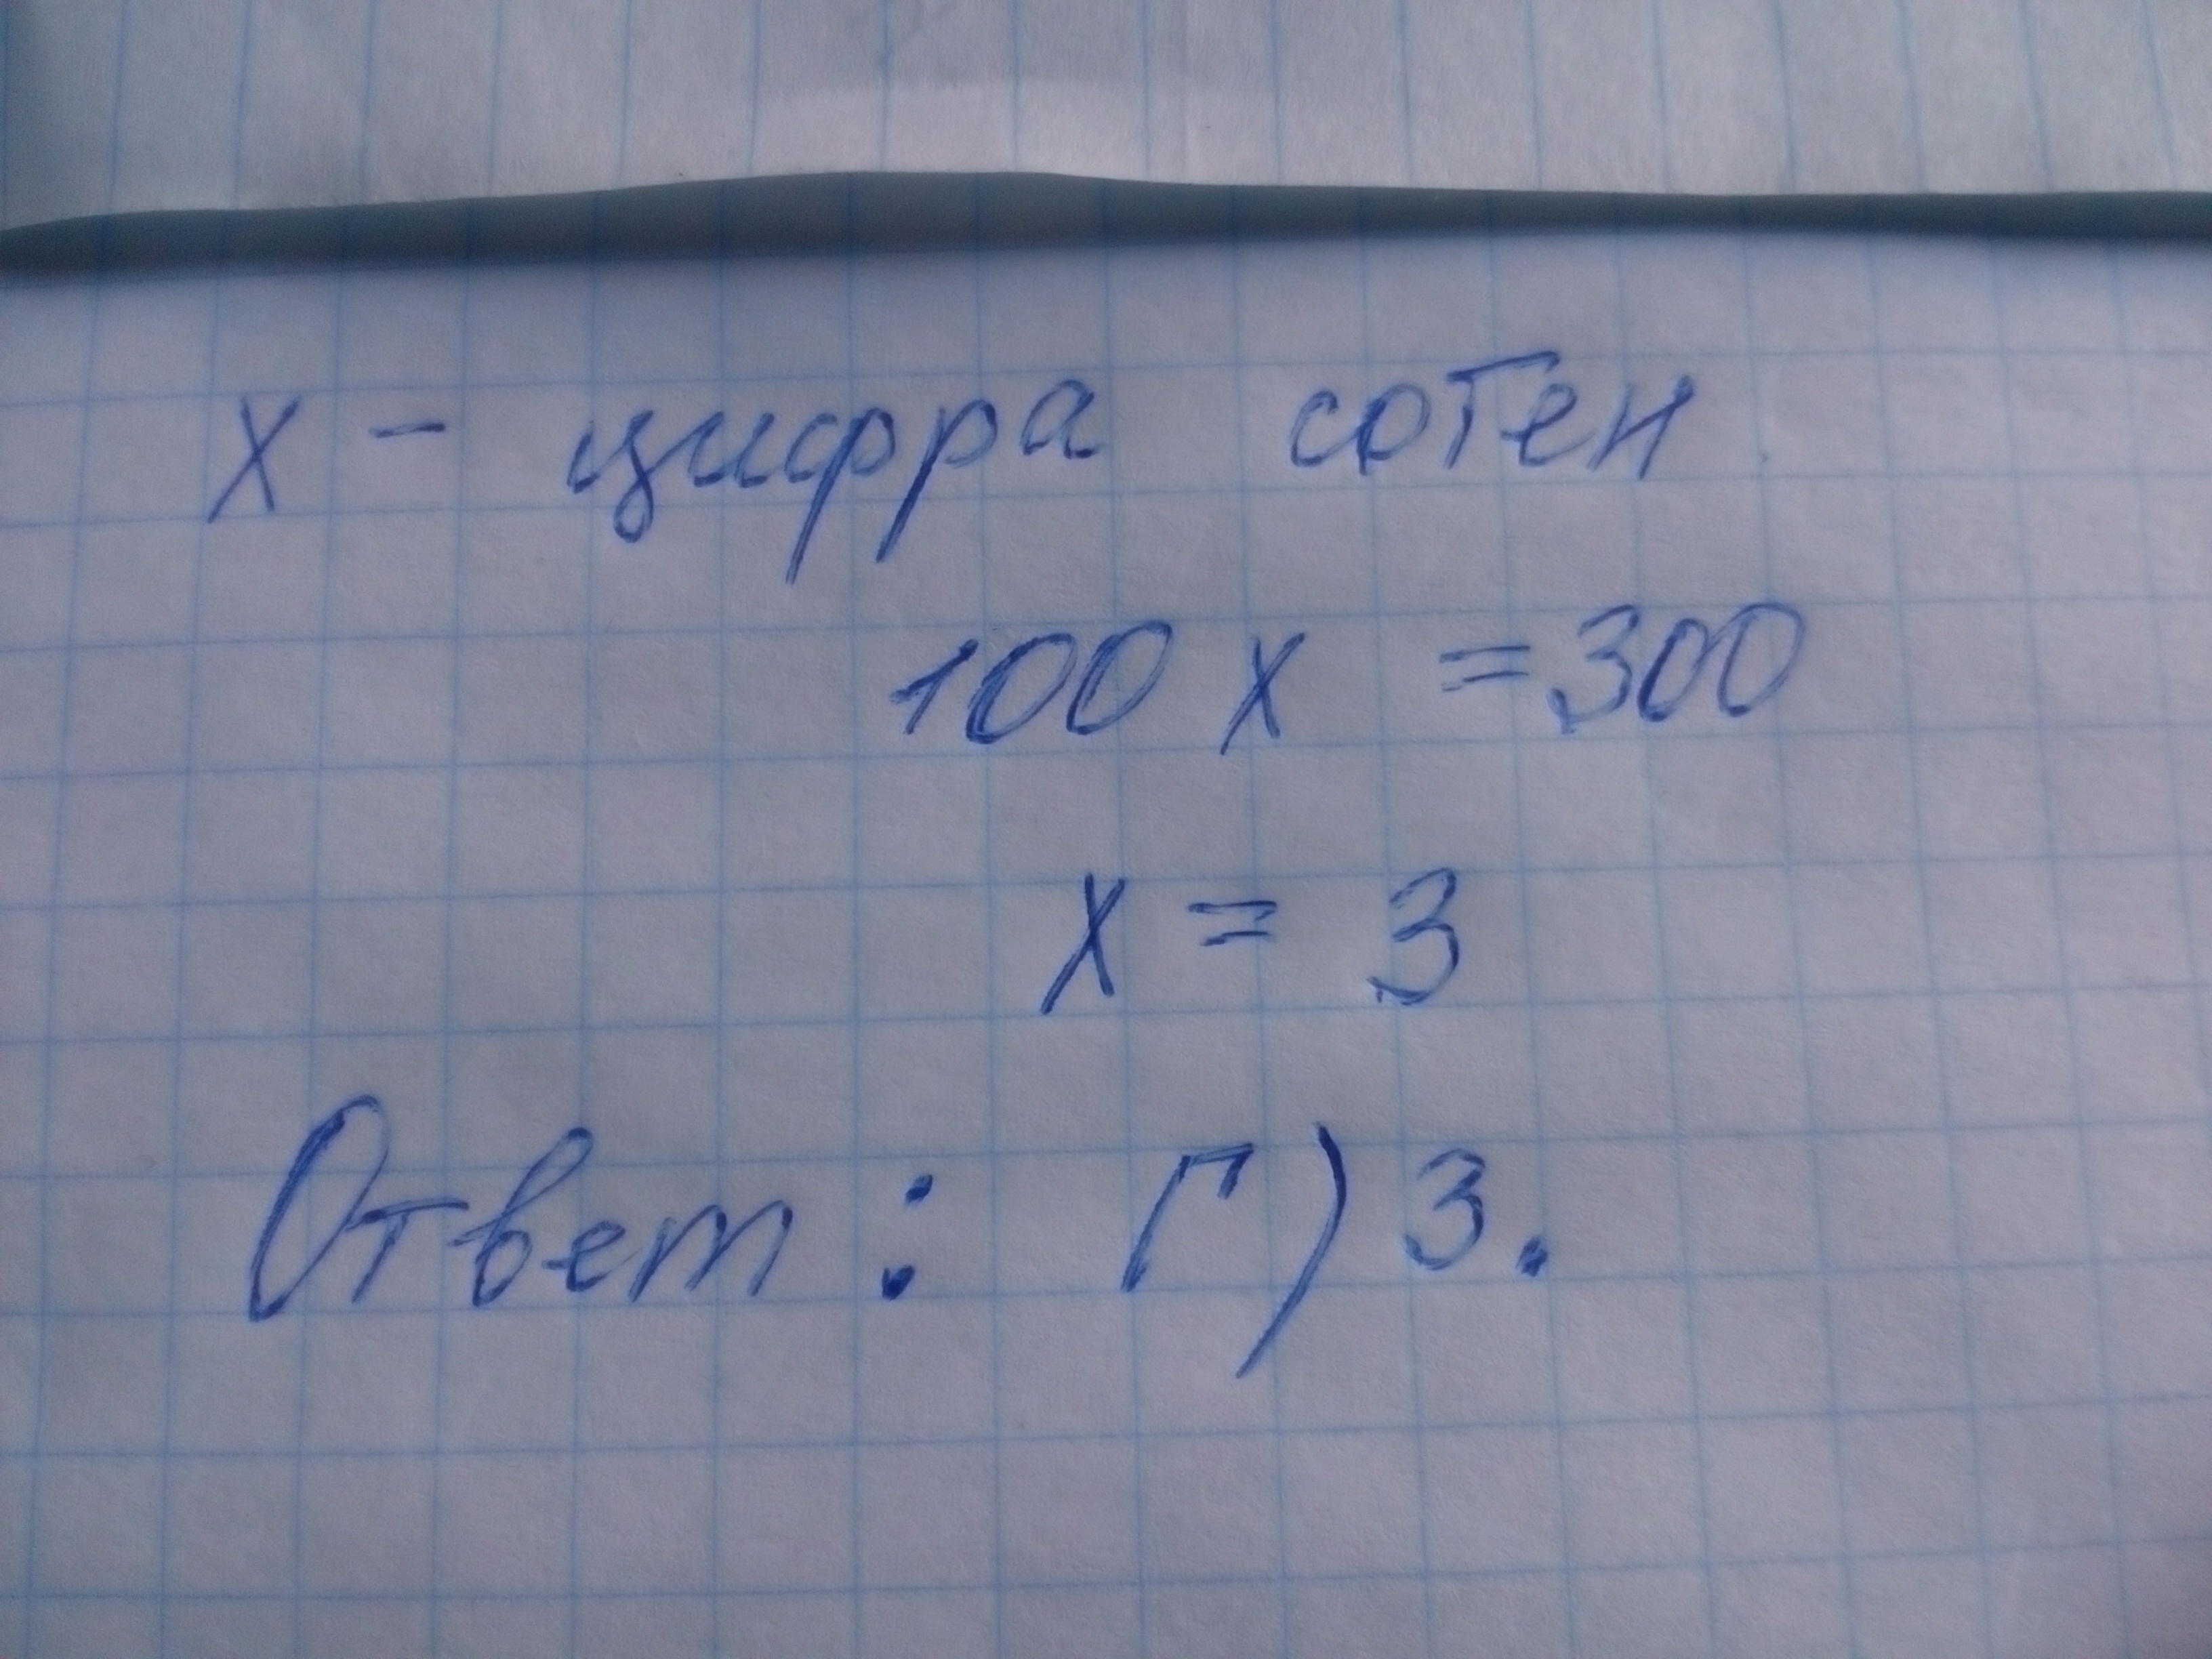 х - цифра сотен
100 х = 300
х = 3
Ответ : Г) 3.